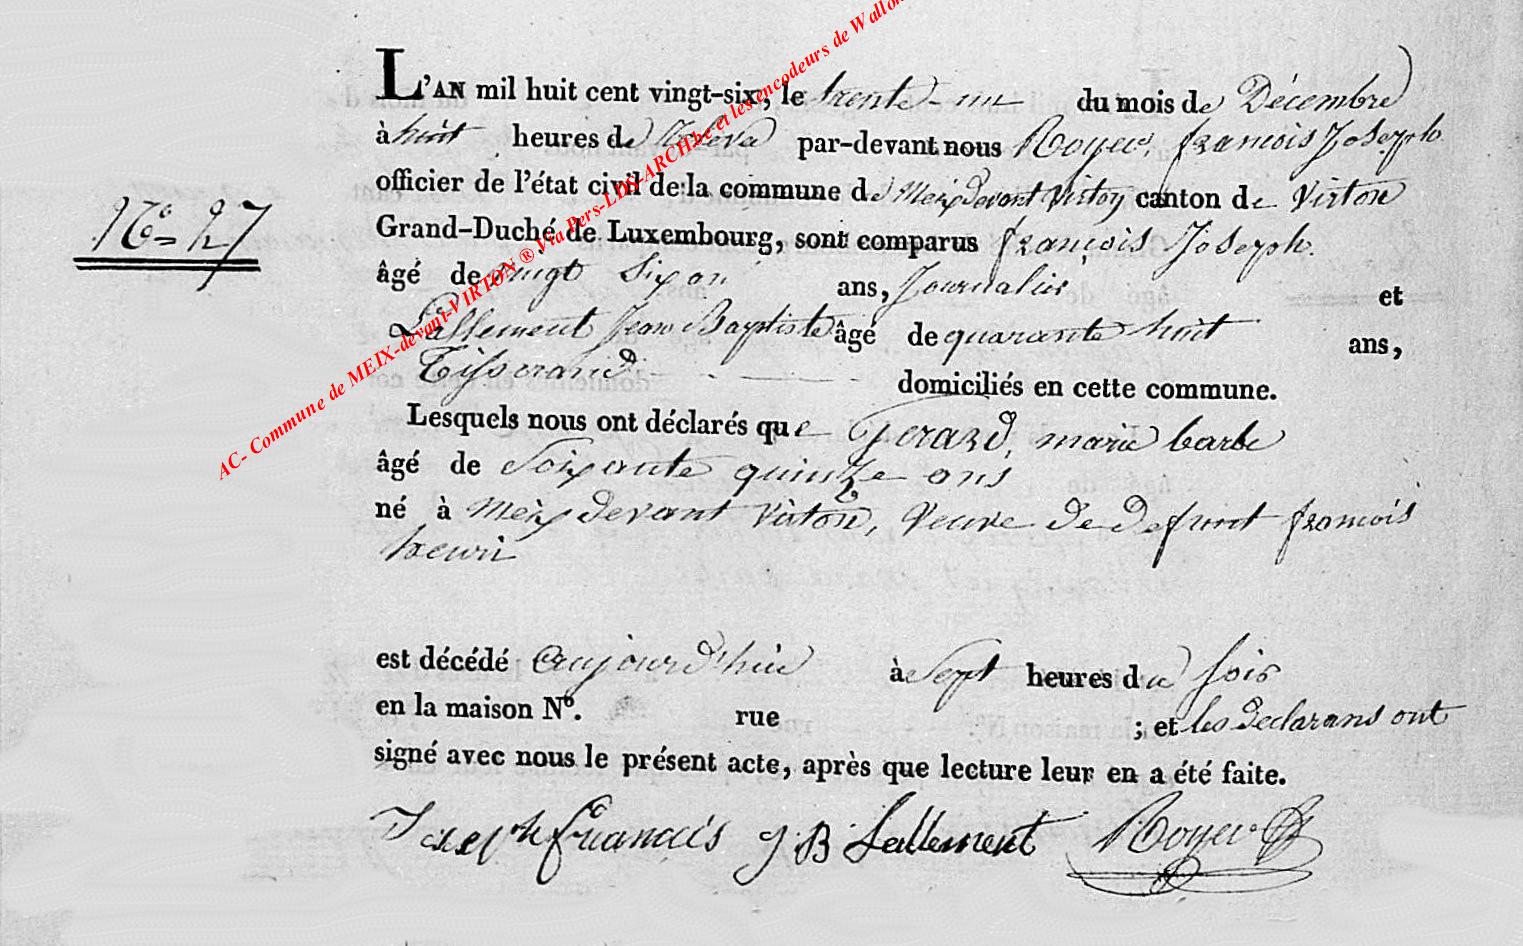 L'AN mil huit cent vingt-six, le trente-un du mois de Décembre
à huit heures de relevé par-devant nous Royer, françois Joseph
officier de l'état civil de la commune de Meix devant Virton canton de Virton
N.° 27
Grand-Duché de Luxembourg, sont comparus françois Joseph.
âgé de vingt six ans, Journalier et
Lallement Jean Baptiste âgé de quarante huit ans,
Tisserand domiciliés en cette commune.
Lesquels nous ont déclarés que Gerard, marie barbe
âgé de Soixante quinze ans
né à Meix devant Virton, veuve de defunt françois
henri
est décédé aujourd'hui à Sept heures du soir
en la maison N°. rue ; et les declarans ont
signé avec nous le présent acte, après que lecture leur en a été faite.
Joseph francois J B Lallement Royer
AC- Commune de MEIX-devant-VIRTON ® Via Pers-LDS-ARCHbe et les encodeurs de